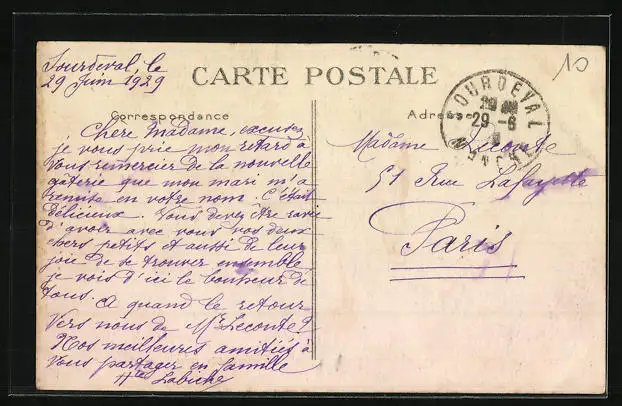 Sourdeval, le
29 Juin 1929
CARTE POSTALE
Correspondance
Adresse
SOURDEVAL
29 -6
MANCHE
10
Chère Madame, excusez
je vous prie mon retard à
vous remercier de la nouvelle
gâterie que mon mari m'a
remise en votre nom. C'était
délicieux. Vous devez être ravie
d'avoir avec vous vos deux
chers petits et aussi de leur
joie de se trouver ensemble
je vois d'ici le bonheur de
tous. A quand le retour
vers nous de Mr Leconte?
Nos meilleures amitiés à
vous partager en famille
Labiche
Madame Leconte
51 Rue Lafayette
Paris